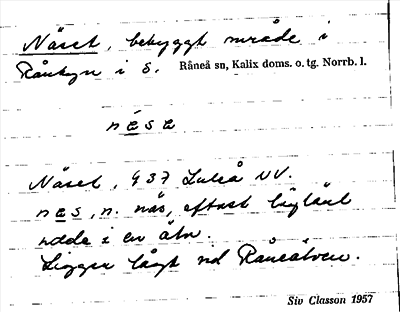 Näset, bebyggt område i
Rånbyn i S. Råneå sn, Kalix doms. o. tg. Norrb. l.
nęse
Näset, 937 Luleå NV.
nęs, n. näs, oftast låglänt
udde i en älv.
Ligger lågt vid Råneälven.
Siv Classon 1957